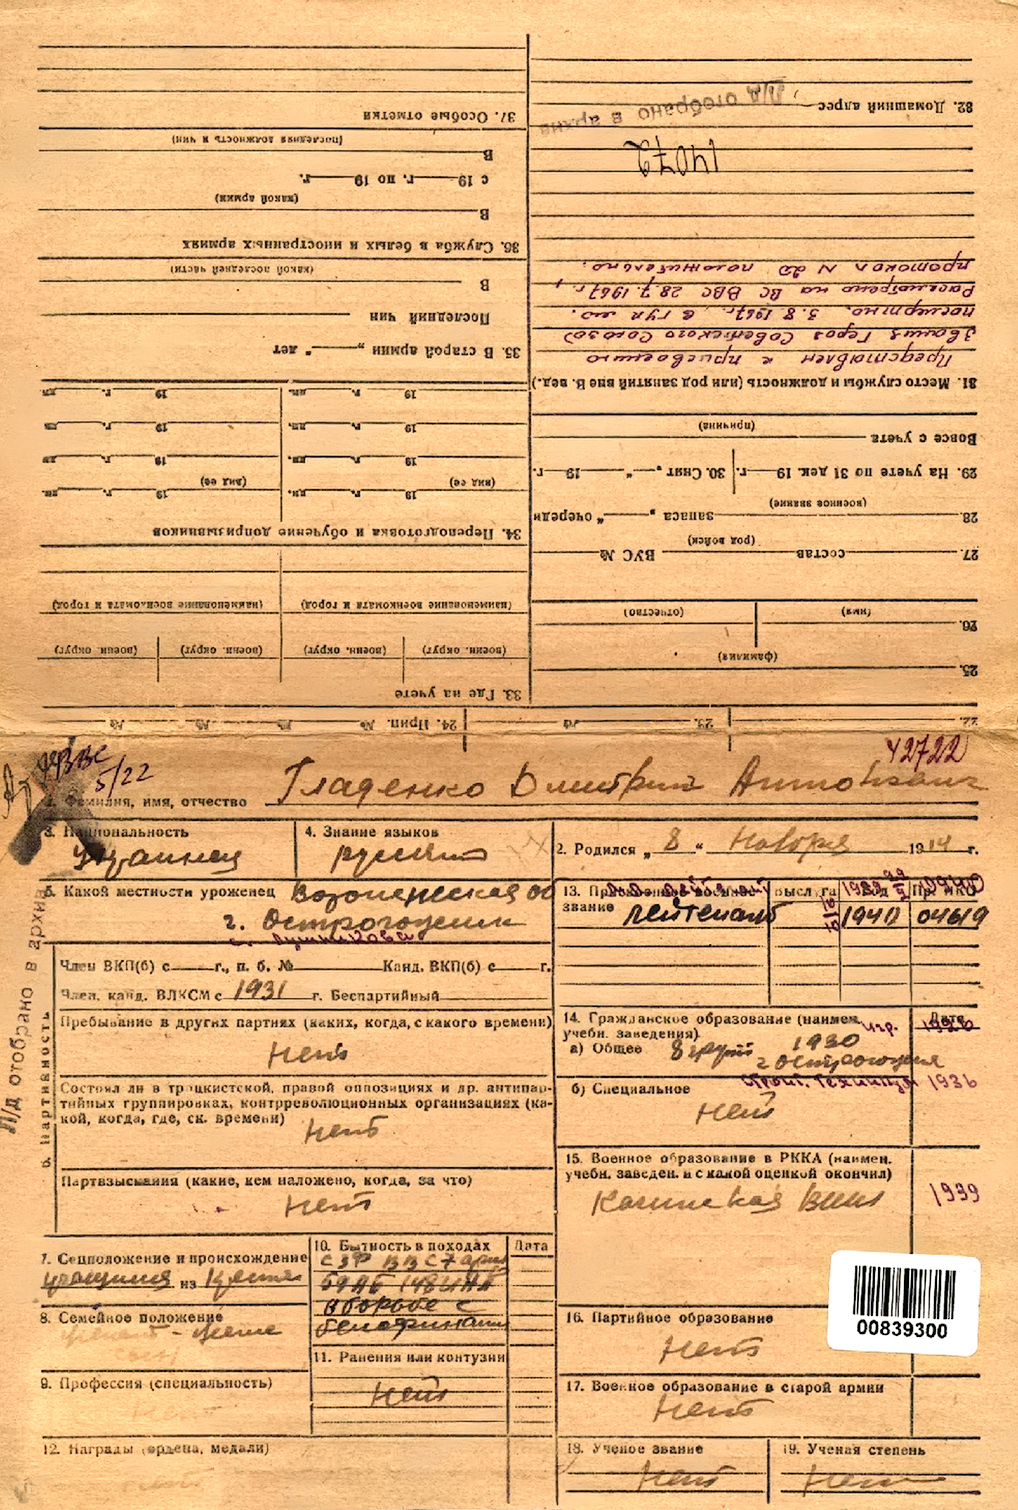 37. Особые отметки
(последняя должность и чин)
В
с 19 г. по 19 г.
(какой армии)
В
36. Служба в белых и иностранных армиях
(какой последней части)
В
Последний чин
35. В старой армии „ “ лет
19 г. дн. 19 г. дн.
19 г. дн. 19 г. дн.
19 г. дн. 19 г. дн.
(вид ее) (вид ее)
19 г. дн. 19 г. дн.
34. Переподготовка и обучение допризывников
(наименование военкомата и город) (наименование военкомата и город)
(воен. округ) (воен. округ) (воен. округ) (воен. округ)
33. Где на учете
32. Домашний адрес
Л/д отобрано в архив
14072
протокол N 20 положительно.
Рассмотрено на ВС ВВС 28.7.1967 г.,
посмертно. 3.8.1967г. в ГУК МО.
звания Героя Советского Союза)
Представлен к присвоению
31. Место службы и должность (или род занятий вне В. вед.)
(причина)
Вовсе с учета
29. На учете по 31 дек. 19 г. 30. Снят „ “ 19 г.
(военное звание)
28. запаса „ “ очереди
(род войск)
27. состав ВУС №
(имя) (отчество)
26.
(фамилия)
25.
22. 23. № 24. Прип. № № № №
УВВС
5/22
42722
1. Фамилия, имя, отчество Гладенко Дмитрий Антонович
3. Национальность
Украинец
4. Знание языков
русский
2. Родился „ 8 “ Ноября 1914 г.
5. Какой местности уроженец Воронежская об
г. Острогожск
с. Лушниковка
13. Присвоенное военное
звание
лейтенант 1940 04619
6. Партийность
Член ВКП(б) с г., п. б. № Канд. ВКП(б) с г.
Член, канд. ВЛКСМ с 1931 г. Беспартийный
Пребывание в других партиях (каких, когда, с какого времени)
Нет
Состоял ли в троцкистской, правой оппозициях и др. антипар-
тийных группировках, контрреволюционных организациях (ка-
кой, когда, где, ск. времени)
Нет
Партвзыскания (какие, кем наложено, когда, за что)
Нет
Л/д отобрано в архив
14. Гражданское образование (наимен.
учебн. заведения) Дата
а) Общее 8 групп 1930
г Острогожск
б) Специальное
строит. техникум 1936
Нет
15. Военное образование в РККА (наимен.
учебн. заведен. и с какой оценкой окончил)
Качинская ВШЛ 1939
7. Соцположение и происхождение
учащийся из Крестьян
8. Семейное положение
9. Профессия (специальность)
10. Бытность в походах Дата
СЗФ ВВС 7 арм
148 ИАП
в борьбе с
белофиннами
11. Ранения или контузии
Нет
12. Награды (ордена, медали)
16. Партийное образование
Нет
17. Военное образование в старой армии
Нет
18. Ученое звание
Нет
19. Ученая степень
Нет
00839300